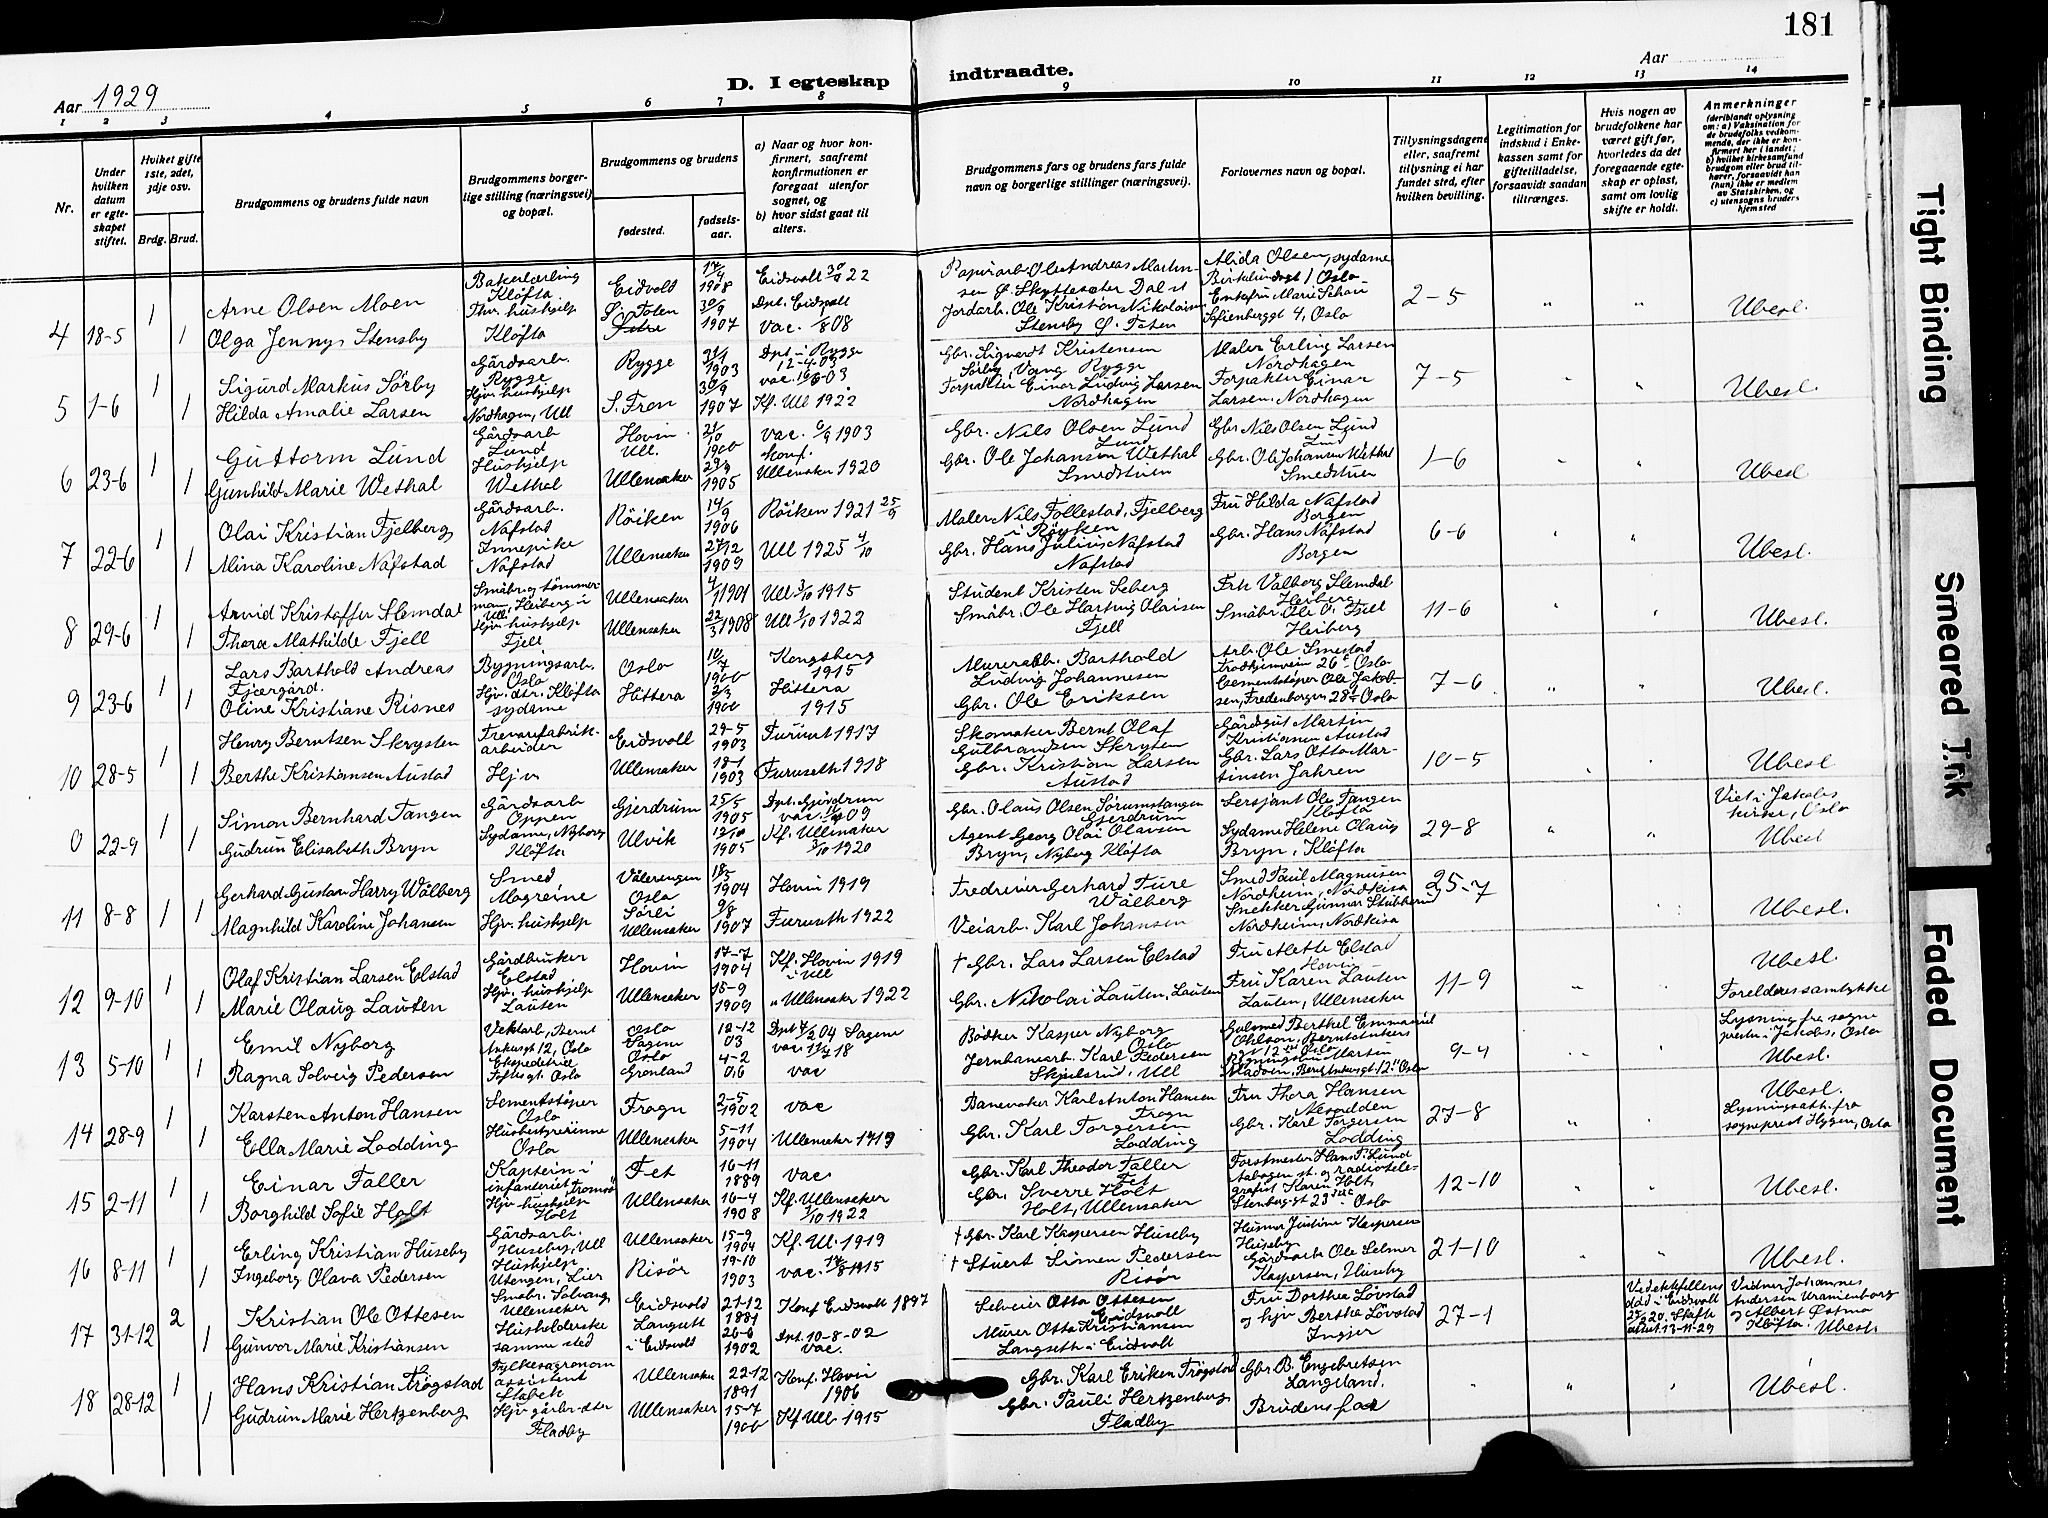 181
Aar 1929
D. I egteskap indtraadte.
Aar
1 2 3 4 5 6 7 8 9 10 11 12 13 14
Nr.
Under hvilken datum er egteskapet stiftet.
Hviket gifte 1ste, 2det, 3dje osv.
Brdg. Brud.
Brudgommens og brudens fulde navn
Brudgommens borgerlige stilling (næringsvei) og bopæl.
Brudgommens og brudens
fødested.
fødselsaar.
a) Naar og hvor konfirmert, saafremt konfirmationen er foregaat utenfor sognet, og
b) hvor sidst gaat til alters.
Brudgommens fars og brudens fars fulde navn og borgerlige stillinger (næringsvei).
Forlovernes navn og bopæl.
Tillysningsdagene eller, saafremt tillysning ei har fundet sted, efter hvilken bevilling.
Legitimation for indskud i Enkekassen samt for giftetilladelse, forsaavidt saadan tiltrænges.
Hvis nogen av brudefolkene har været gift før, hvorledes da det foregaaende egteskap er opløst, samt om lovlig skifte er holdt.
Anmerkninger (deriblandt oplysning om: a) Vaksination for de brudefolks vedkommende, der ikke er konfirmert her i landet; b) hvilket kirkesamfund brudgom eller brud tilhører, forsaavidt han (hun) ikke er medlem av Statskirken, og c) utensogns bruders hjemsted
4 18-5 1 1
Arne Olsen Moen
Olga Jenny Stensby
Bakerlærling
Kløfta
Hjv. hushjelp
Kløfta
Eidsvold
Ø. Toten
17/4 1908
30/9 1907
Eidsvolt 30/9 22
Dpt. Eidsvolt
vac. 1/8 08
Papirarb. Ole Andreas Martinsen
Jordarb. Ole Kristian Nikolaisen
Stensby Ø. Toten
Alida Olsen, sydame
Enkefru Marie Schou
Sofienberggt 4, Oslo
2-5
Ubesl.
5 1-6 1 1
Sigurd Markus Sörby
Hilda Amalie Larsen
Gårdsarb.
Rygge
Hjv. hushjelp
Nordhagen, Ull
Rygge
S. Fron
1903
30/9 1907
Dpt. i Rygge
12-4-03
Kf. Ull 1922
Gbr. Sigvardt Kristensen
Sörby, Vang Rygge
Forpakter Einar Ludvig Larsen
Nordhagen
Maler Erling Larsen
Nordhagen
Forpakter Einar
Larsen. Nordhagen
7-5
Ubesl.
6 23-6 1 1
Guttorm Lund
Gunhild Marie Wethal
Gårdsarb
Lund
Hushjelp
Wethal
Hovin
Ull.
Ullensaker
21/10 1900
29/9 1905
vac. 6/9 1903
Konf.
Ullensaker 1920
Gbr. Nils Olsen Lund
Lund
Gbr. Ole Johansen Wethal
Smedstuen
Gbr Nils Olsen Lund
Lund
Gbr. Ole Johansen Wethal
Smedstuen
1-6
Ubesl
7 22-6 1 1
Olai Kristian Fjelberg
Alina Karoline Nafstad
Gårdsarb.
Nafstad
Innepike
Nafstad
Röiken
Ullensaker
14/9 1906
27/12 1909
Röiken 1921 25/9
Ull 1925 4/10
Maler Nils Follestad, Fjelberg
i Röyken
Gbr. Hans Julius Nafstad
Nafstad
Fru Hilda Nafstad
Borgen
Gbr. Hans Nafstad
Borgen
6-6
Ubesl.
8 29-6 1 1
Arvid Kristoffer Slemdal
Thora Mathilde Fjell
Småbr. og tømmermann, Heiberg i
Ull
Hjv. hushjelp
Fjell
Ullensaker
Ullensaker
4/1 1901
22/3 1908
Ull 3/10 1915
Ull 1/10 1922
Student Kristen Seberg
Småbr. Ole Hartvig Olaisen
Fjell
Frk Valborg Slemdal
Heiberg
Småbr. Ole O. Fjell
Heiberg
11-6
Ubesl.
9 23-6 1 1
Lars Barthold Andreas
Fjærgård.
Oline Kristiane Risnes
Bygningsarb.
Oslo
Hjv. dtr. Kløfta
sydame
Oslo
Hittera
10/7 1900
2/3 1900
Kongsberg
1915
Hittera
1915
Murerarb. Barthold
Ludvig Johannesen
Gbr. Ole Eriksen
Arb. Ole Smestad
Trondhjemsvein 26c Oslo
Cementstøper Ole Jakobsen, Fredenborgvn 28c Oslo
7-6
Ubesl.
10 28-5 1 1
Henry Berntsen Skrysten
Berthe Kristiansen Austad
Trevarefabrikarbeider
Hjv
Eidsvoll
Ullensaker
29-5 1903
18-1 1903
Furuset 1917
Furuseth 1918
Skomaker Bernt Olaf
Gulbrandsen Skrysten
Gbr. Kristian Larsen
Austad
Gårdsgut Martin
Kristiansen Austad
Gbr. Lars Otto Martinsen Jahren
10-5
Ubesl
0 22-9 1 1
Simon Bernhard Tangen
Gudrun Elisabeth Bryn
Gårdsarb
Oppen
Sydame, Nyborg
Kløfta
Gjerdrum
Ulvik
25/5 1905
12/10 1905
Dpt. Gjerdrum
Kf. Ullensaker
3/10 1920
Gbr. Olaus Olsen Sörumstangen
Gjerdrum
Agent Georg Olai Olavsen
Bryn, Nyborg Kløfta
Sersjant Ole Tangen
Kløfta
Sydame Helene Olaug
Bryn, Kløfta
29-8
Viet i Jakobs
kirke, Oslo
Ubesl
11 8-8 1 1
Gerhard Gustav Harry Wålberg
Magnhild Karoline Johansen
Smed
Mogreine
Hjv. hushjelp
Vålerengen
Oslo
Sörli
Ullensaker
18/5 1904
9/8 1907
Hovin 1919
Furuseth 1922
Fredriver Gerhard Ture
Wålberg
Veiarb. Karl Johansen
Smed Paul Magnusen
Nordheim, Nordkisa
Snekker Gunnar Stubberud
Nordheim, Nordkisa
25-7
Ubesl.
12 9-10 1 1
Olaf Kristian Larsen Elstad
Marie Olaug Lauten
Gårdbruker
Elstad
Hjv. hushjelp
Lauten
Hovin
Ullensaker
17-7 1904
15-9 1909
Kf. Hovin 1919
i Ull
" Ullensaker 1922
† Gbr. Lars Larsen Elstad
Gbr. Nikolai Lauten, Lauten
Fru Alette Elstad
Hovin
Fru Karen Lauten
Lauten, Ullensaker
11-9
Ubesl.
Forelderes samtykke
13 5-10 1 1
Emil Nyborg
Ragna Solveig Pedersen
Vektarb, Bernt
Ankersgt 12, Oslo
Ekspeditrise
Toftesgt. Oslo
Oslo
Sagene
Oslo
Grønland
12-12 03
4-2 06
Dpt 7/2 04 Sagene
vac
Bødker Kasper Nyborg
Oslo
Jernbanearb. Karl Pedersen
Skjelsrud, Ull
Gulsmed Berthel Emmanuel
Ohlson, Bernt Ankers
gt 12 Oslo
9-4
Lysning fra sogne
prestn. i Jakobs, Oslo
Ubesl.
14 28-9 1 1
Karsten Anton Hansen
Ella Marie Lodding
Sementstøper
Oslo
Husbestyrerinne
Oslo
Frogn
Ullensaker
2-5 1902
5-11 1904
vac
Ullensaker 1919
Banevokter Karl Anton Hansen
Frogn
Gbr. Karl Torgersen
Lodding
Fru Thora Hansen
Nesodden
Gbr. Karl Torgersen
Lodding
27-8
Ubesl.
Lysningsatt. fra
sogneprest Hygen, Oslo
15 2-11 1 1
Einar Faller
Borghild Sofie Holt
Kaptein i
infanteriet, Tromsö
Hjv hushjelp
Holt
Fet
Ullensaker
16-11 1889
16-4 1908
vac.
Kf. Ullensaker
1/10 1922
Gbr. Karl Theodor Faller
Fet
Gbr. Sverre Holt
Holt, Ullensaker
Forstmester Hans P. Lund
Aabogen st. og radiotelegrafist Karen Holt,
Stensbggt 23 Oslo
12-10
Ubesl.
16 8-11 1 1
Erling Kristian Huseby
Ingeborg Olava Pedersen
Gårdsarb.
Huseby, Ull
Hushjelp
Utengen, Lier
Ullensaker
Risör
15-9 1904
19-10 1903
Kf. Ull. 1919
† Gbr. Karl Kaspersen Huseby
† Stuert Simen Pedersen
Risör
Husmor Justine Kaspersen
Huseby
Gårdsarb Ole Selmer
Kaspersen, Huseby
21-10
Ubesl.
17 31-12 2 1
Kristian Ole Ottesen
Gunvor Marie Kristiansen
Småbr. Solvang
Ullensaker
Husholderske
samme sted
Eidsvold
Langset
i Eidsvolt
21-12 1881
26-6 1902
Konf Eidsvolt 1897
Dpt. 10-8-02
vac.
Selveier Otto Ottesen
Eidsvoll
Murer Otto Kristiansen
Langseth i Eidsvolt
Fru Dorthea Lövstad
og hjv Berthe Lövstad
Ingjer
27-1
Ved ektefellens
død i Eidsvoll
Skifte
13-11-29
Vidner Johannes
Andersen Uranienborg
og Albert Østmo
Kløfta. Ubesl.
18 28-12 1 1
Hans Kristian Trøgstad
Gudrun Marie Hertzenberg
Fylkesagronom
assistent
Stabek
Hjv gårbr. dtr
Fladby
Ullensaker
Ullensaker
22-12 1891
15-7 1900
Konf. Hovin
1906
Kf Ull 1915
Gbr. Karl Eriken Trøgstad
Gbr. Pauli Hertzenberg
Fladby
Gbr. B. Engebretsen
Langeland.
Brudens far
Ubesl.
Tight Binding
Smeared Ink
Faded Document